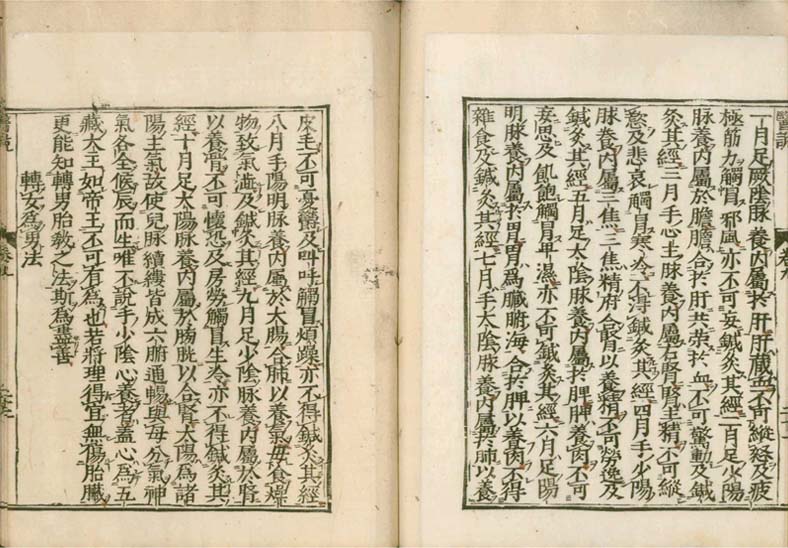 一月足厥陰脉養内屬於肝肝藏血不可縱怒及疲
極筋力觸冒邪風亦不可妄鍼灸其經二月足少陽
脉養内屬於膽膽合於肝共榮於血不可驚動及鍼
灸其經三月手心主脉養内屬右腎腎主精不可縱
慾及悲哀觸冒寒冷不得鍼灸其經四月手少陽
脉養内屬三焦三焦精府合腎以養精不可勞逸及
鍼灸其經五月足太陰脉養内屬於脾脾養肉不可
妄思及飢飽觸冒卑濕亦不可鍼灸其經六月足陽
明脉養内屬於胃胃為臟腑海合於脾以養肉不得
雜食及鍼灸其經七月手太陰脉養内屬於肺以養
皮毛不可憂鬱及叫呼觸冒煩躁亦不得鍼灸其經
八月手陽明脉養内屬於大腸合肺以養氣毋食燥
物致氣澁及鍼灸其經九月足少陰脉養内屬於腎
以養骨不可懷恐及房勞觸冒生冷亦不得鍼灸其
經十月足太陽脉養内屬於膀胱以合腎太陽為諸
陽主氣故使兒脉續縷皆成六腑通暢與母分氣神
氣各全俟辰而生唯不說手少陰心養者蓋心為五
藏大王如帝王不可有為也若將理得宜無傷胎臟
更能知轉男胎教之法斯為盡善
轉女為男法